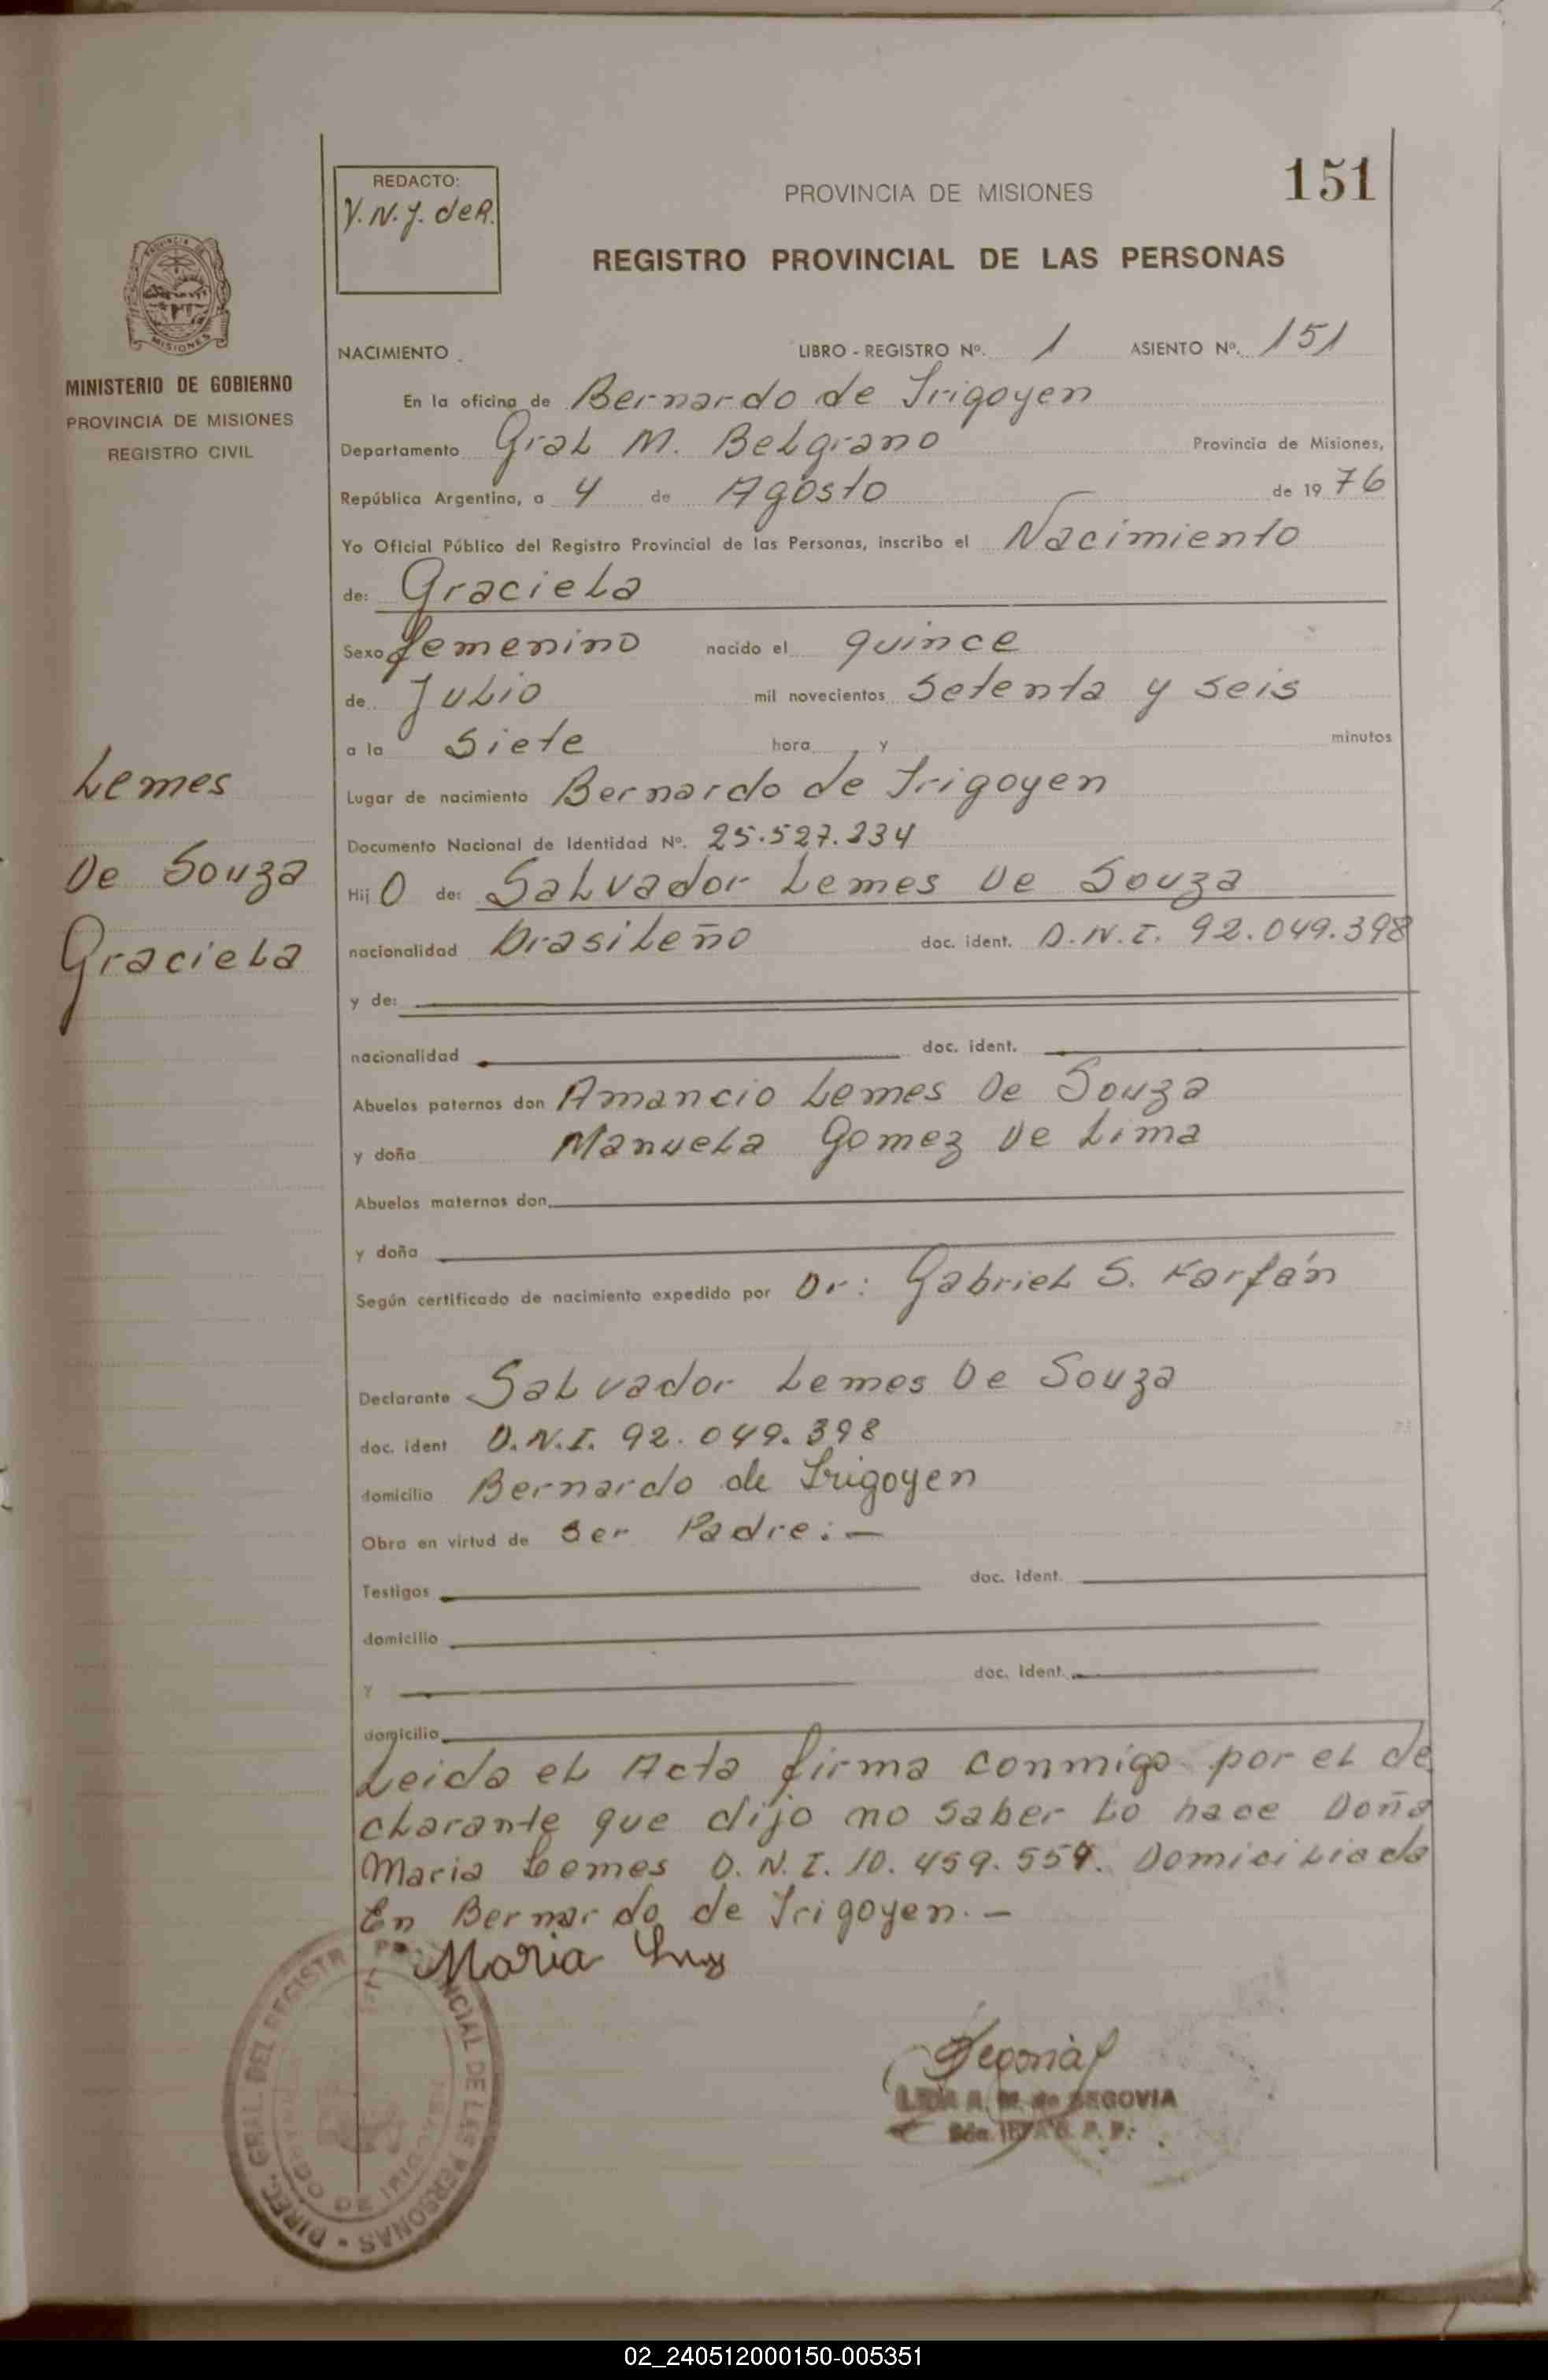 151
REDACTO:
Y.N.J. de R.
PROVINCIA DE MISIONES
REGISTRO PROVINCIAL DE LAS PERSONAS
MISIONES
MINISTERIO DE GOBIERNO
PROVINCIA DE MISIONES
REGISTRO CIVIL
Lemes
De Souza
Graciela
NACIMIENTO LIBRO - REGISTRO Nº. 1 ASIENTO Nº. 151
En la oficina de Bernardo de Irigoyen
Departamento Gral M. Belgrano Provincia de Misiones,
República Argentina, a 4 de Agosto de 1976
Yo Oficial Público del Registro Provincial de las Personas, inscribo el Nacimiento
de: Graciela
Sexo femenino nacido el quince
de Julio mil novecientos setenta y seis
a la siete hora y minutos
Lugar de nacimiento Bernardo de Irigoyen
Documento Nacional de Identidad Nº. 25.527.234
Hij O de: Salvador Lemes De Souza
nacionalidad brasileño doc. ident. D.N.I. 92.049.398
y de:
nacionalidad doc. ident.
Abuelos paternos don Amancio Lemes De Souza
y doña Manuela Gomez De Lima
Abuelos maternos don
y doña
Según certificado de nacimiento expedido por Dr: Gabriel S. Farfán
Declarante Salvador Lemes De Souza
doc. ident D.N.I. 92.049.398
domicilio Bernardo de Irigoyen
Obra en virtud de ser Padre:—
Testigos doc. ident.
domicilio
y doc. ident.
domicilio
Leida el Acta firma conmigo por el de
clarante que dijo no saber lo hace Doña
Maria Lemes D.N.I. 10.459.559. Domiciliada
En Bernardo de Irigoyen.—
Maria
DIREC. GRAL. DEL REGISTR PROVINCIAL DE LAS PERSONAS
DE IRIGOYEN
A. M. de SEGOVIA
02_240512000150-005351